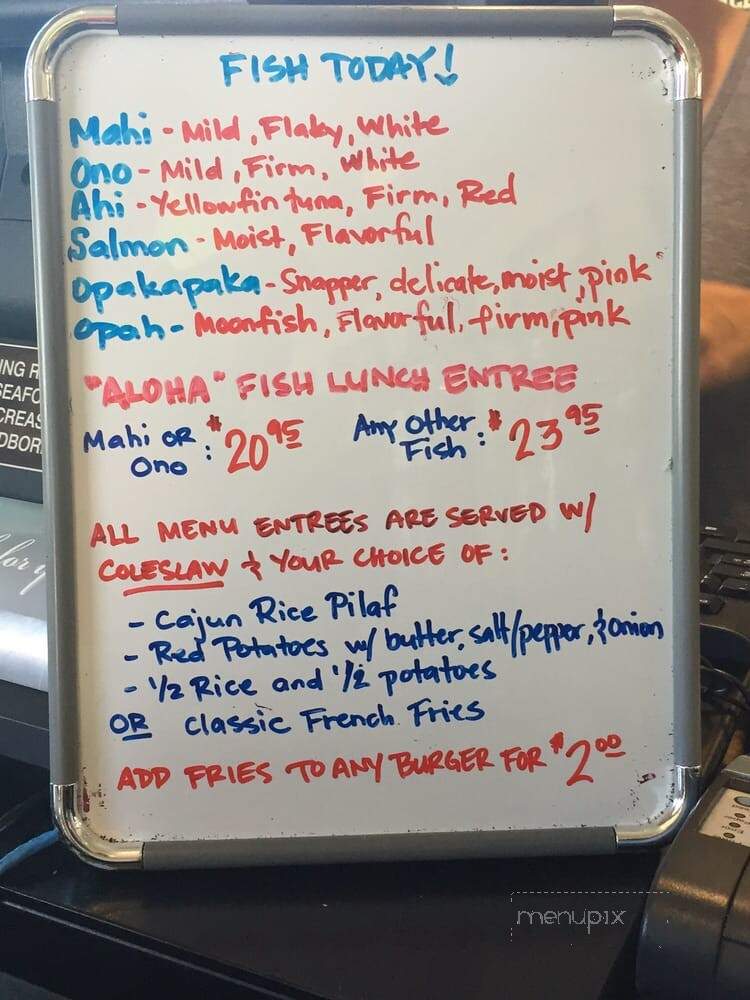 FISH TODAY!
Mahi - Mild, Flaky, White
Ono - Mild, Firm, White
Ahi - Yellowfin tuna, Firm, Red
Salmon - Moist, Flavorful
Opakapaka - Snapper, delicate, moist, pink
Opah - Moonfish, Flavorful, firm, pink
"ALOHA" FISH LUNCH ENTREE
Mahi OR Ono : $20.95 Any Other Fish : $23.95
ALL MENU ENTREES ARE SERVED W/
COLESLAW & YOUR CHOICE OF:
- Cajun Rice Pilaf
- Red Potatoes w/ butter, salt/pepper, & onion
- 1/2 Rice and 1/2 potatoes
OR classic French Fries
ADD FRIES TO ANY BURGER FOR $2.00
menupix